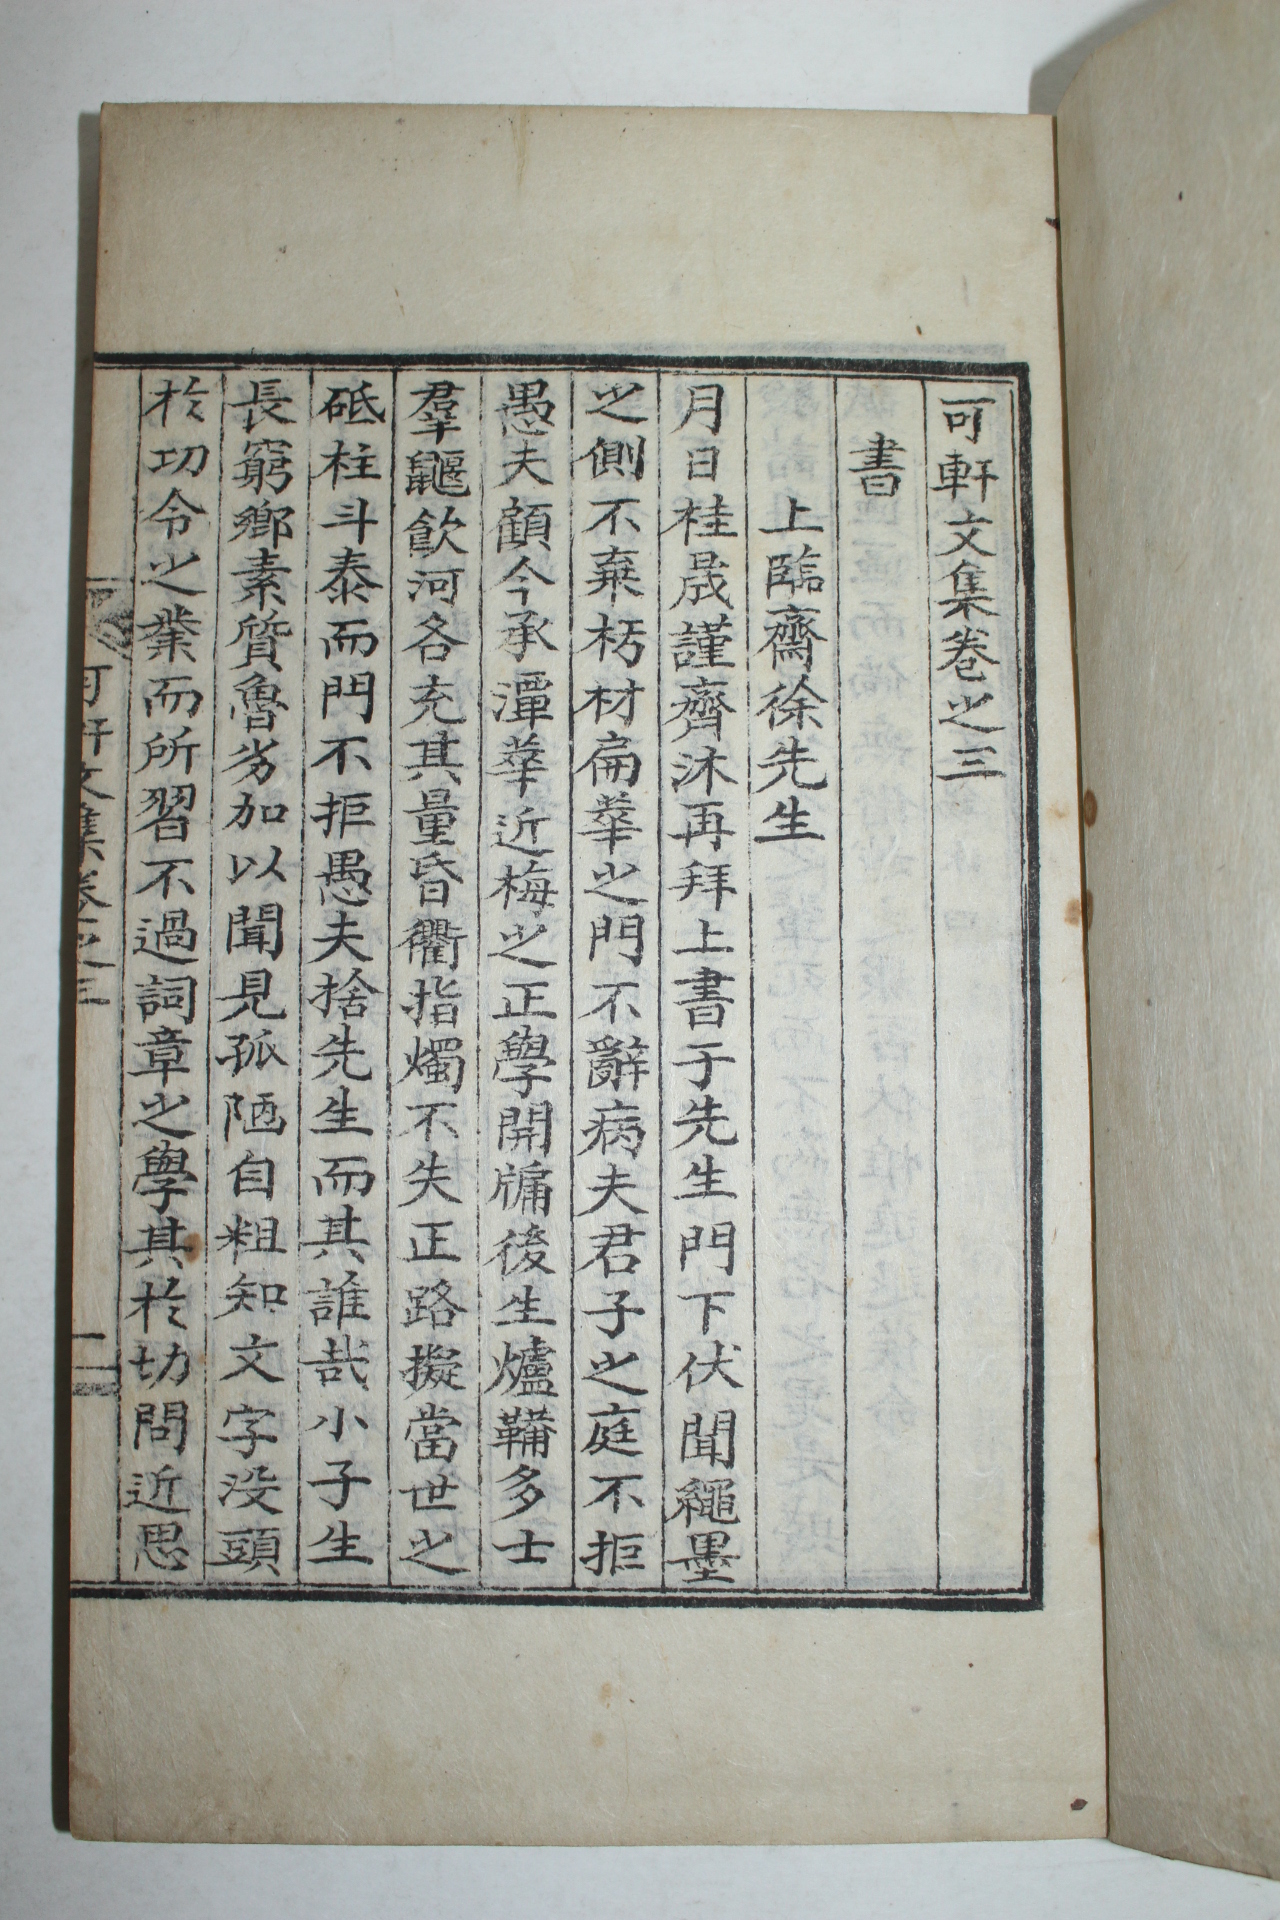 可軒文集卷之三
書
上臨齋徐先生
月日桂晟謹齊沐再拜上書于先生門下伏聞繩墨
之側不棄朽材扁華之門不辭病夫君子之庭不拒
愚夫顧今承潭華近梅之正學開牖後生爐鞴多士
羣鼴飮河各充其量昏衢指燭不失正路擬當世之
砥柱斗泰而門不拒愚夫捨先生而其誰哉小子生
長窮鄕素質魯劣加以聞見孤陋自粗知文字没頭
於功令之業而所習不過詞章之學其於切問近思
可軒文集卷之三
一